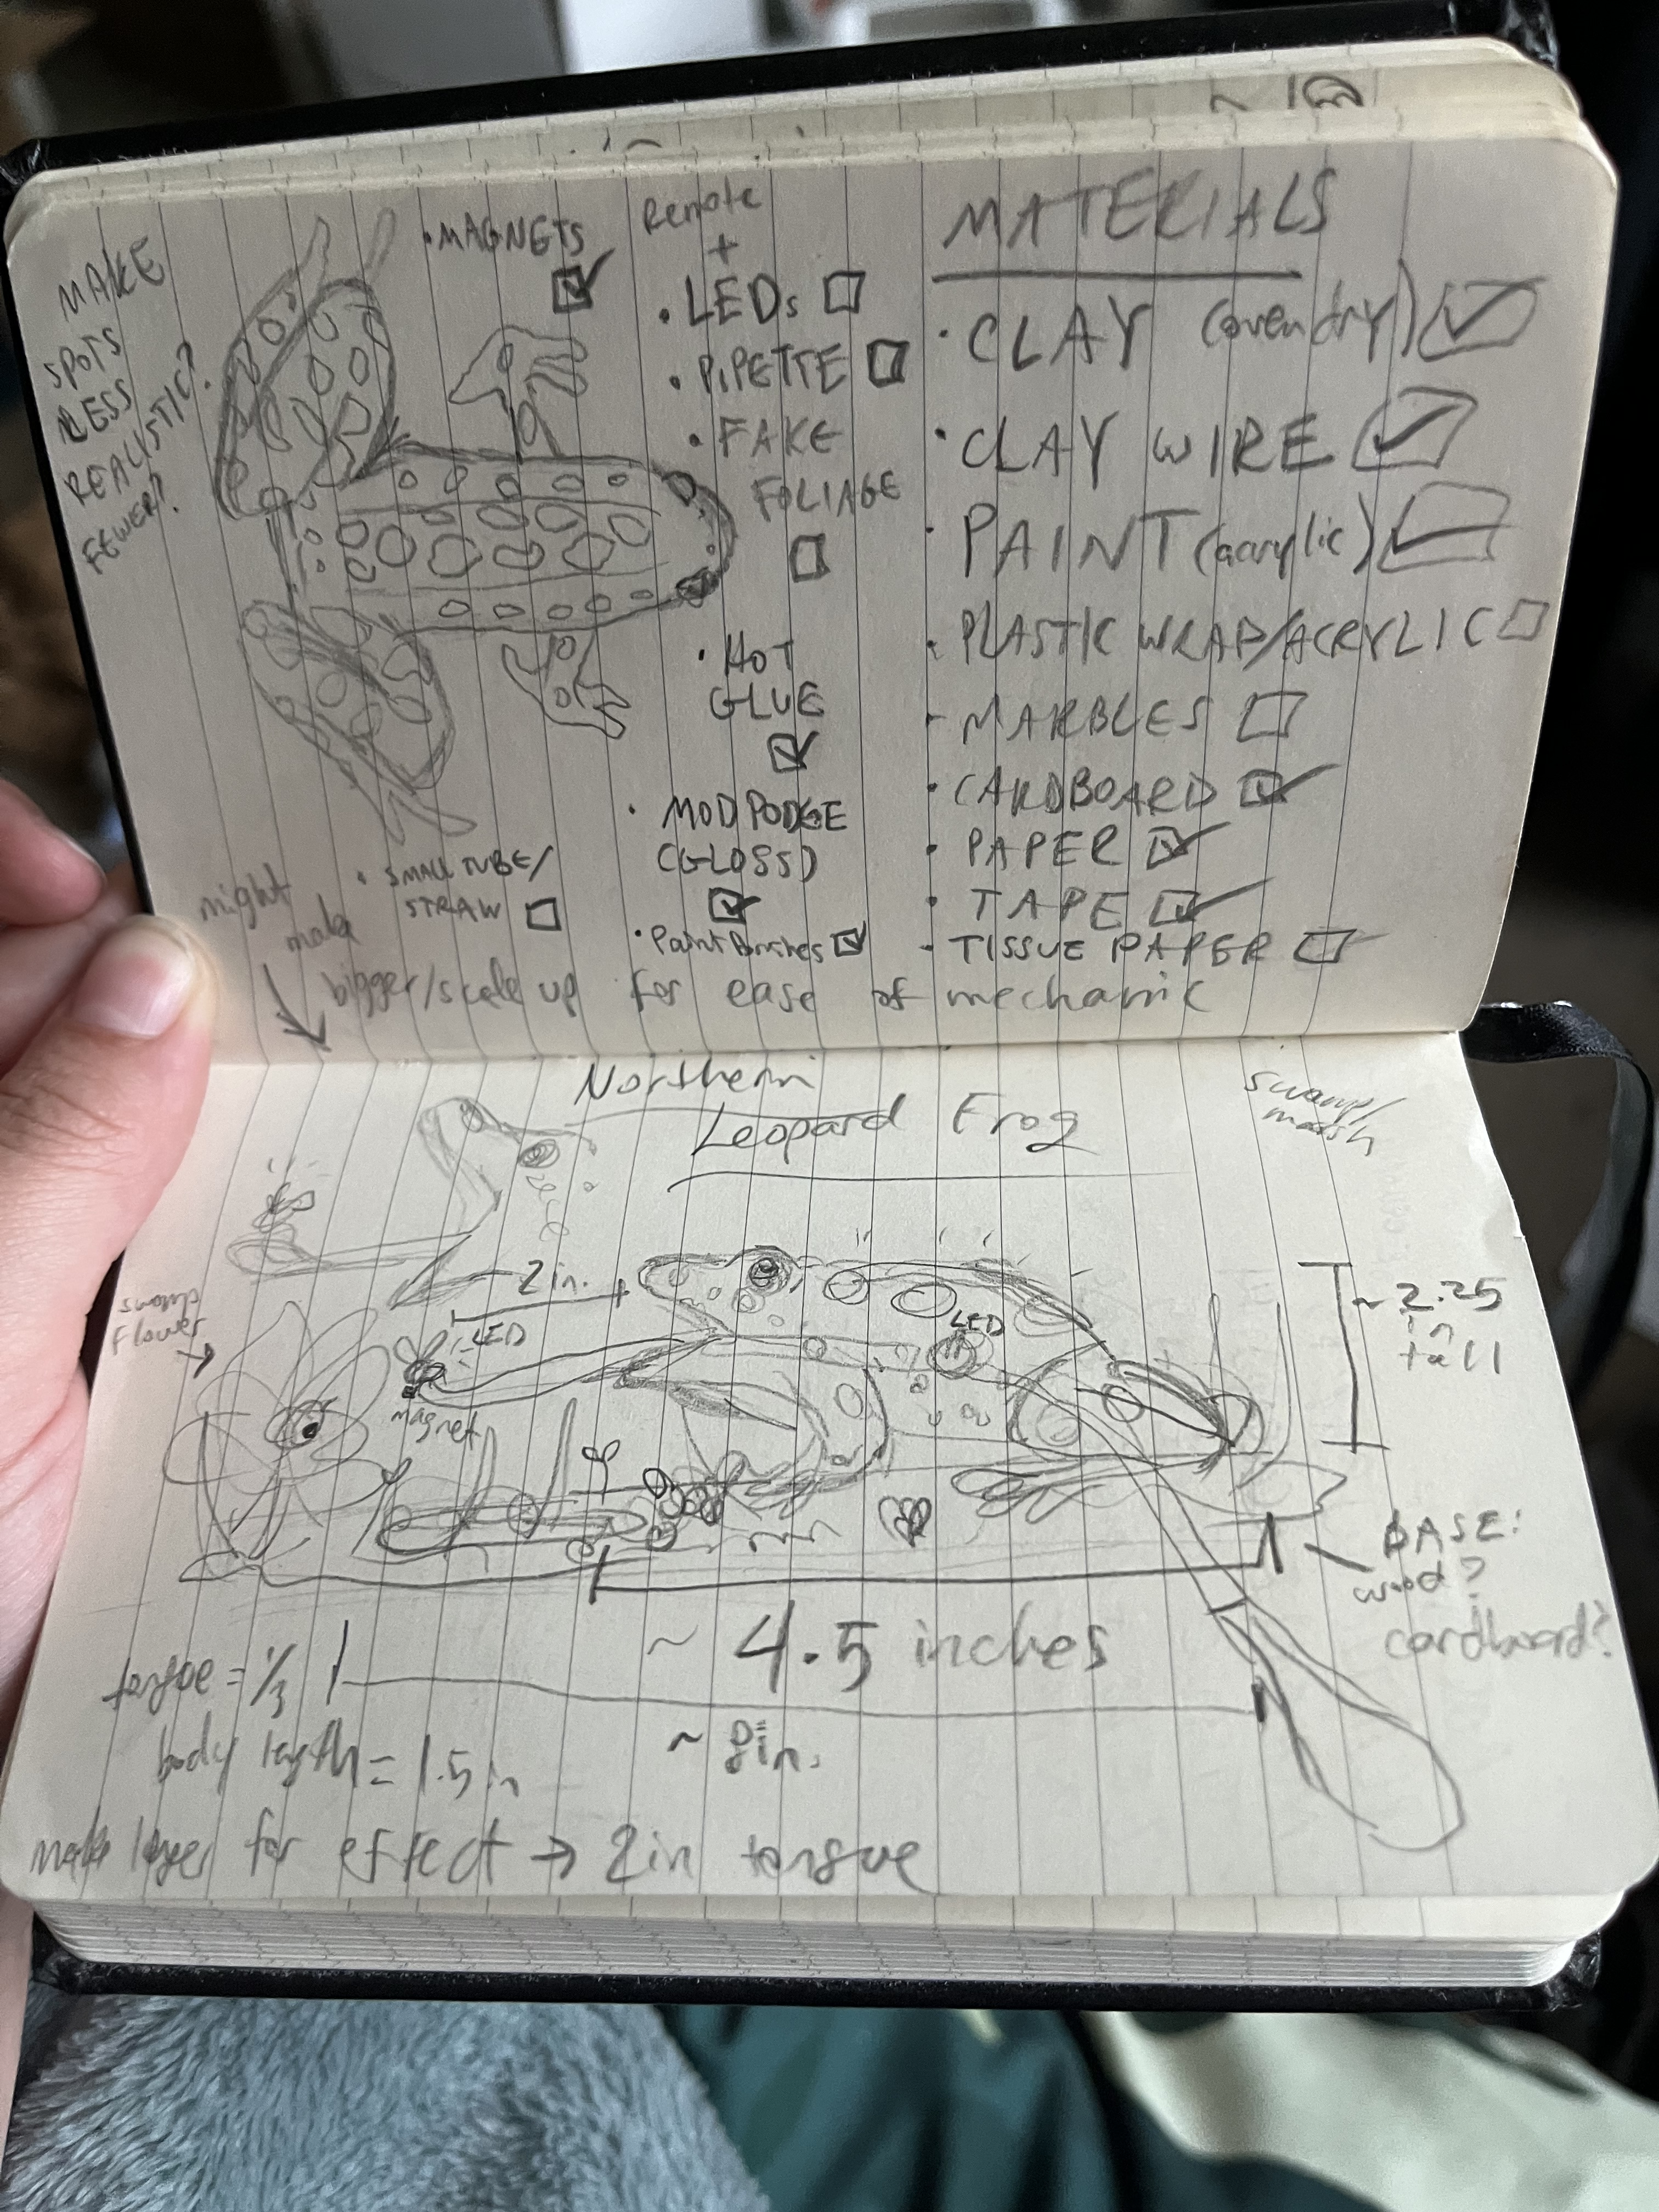 MAKE
SPOTS
LESS
REALISTIC?
FEWER?
• MAGNETS
Remote
+
• LEDs
• PIPETTE
• FAKE
FOLIAGE
• HOT
GLUE
• MOD PODGE
(GLOSS)
• Paint Brushes
• SMALL TUBE/
STRAW
MATERIALS
• CLAY (oven dry)
• CLAY WIRE
• PAINT (acrylic)
• PLASTIC WRAP/ACRYLIC
• MARBLES
• CARDBOARD
• PAPER
• TAPE
• TISSUE PAPER
might
make
bigger/scale up for ease of mechanic
Northern
Leopard Frog
swamp/
marsh
2 in.
swamp
Flower
LED
magnet
LED
~ 2.25
in
tall
BASE:
wood?
cardboard?
~ 4.5 inches
tongue = 1/3
body length = 1.5 in
~ 8in.
make larger for effect → 2in tongue